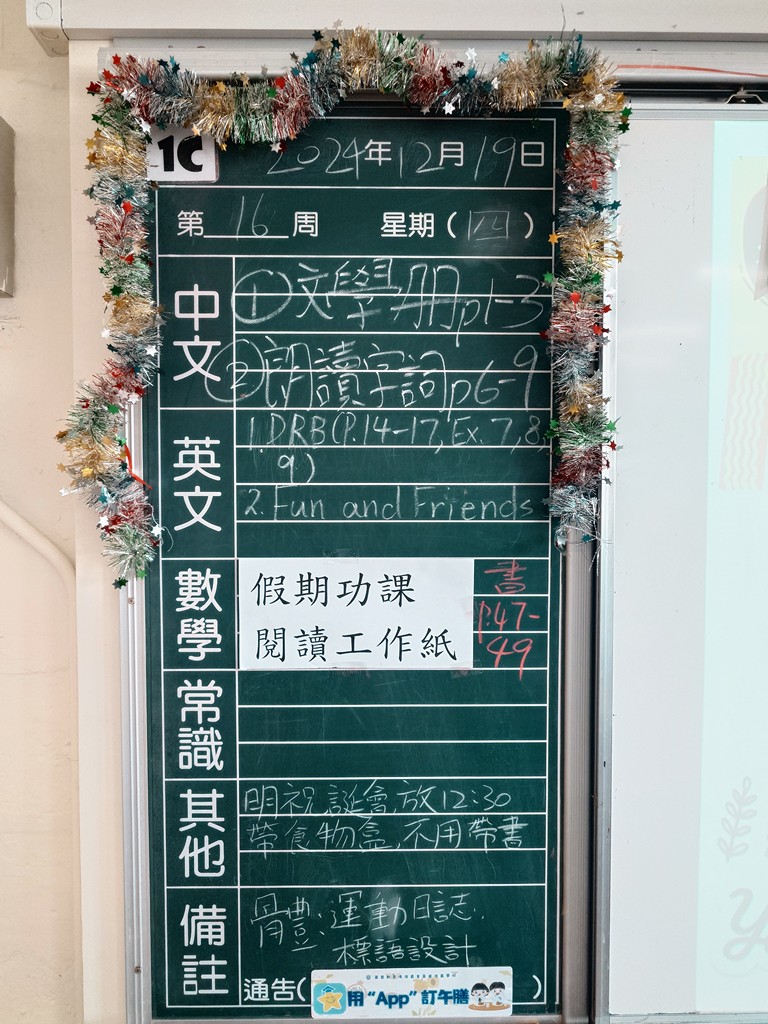 1C
2024年12月19日
第16周 星期(四)
中文
①文學册p1-3
②朗讀字詞p6-9
英文
1.DRB(P.14-17, Ex.7,8,
9)
2. Fun and Friends
數學
假期功課
閱讀工作紙
書
P.47-
49
常識
其他
明祝誕會,放12:30
帶食物盒,不用帶書
備註
體:運動日誌.
標語設計
通告( )
用“App”訂午膳